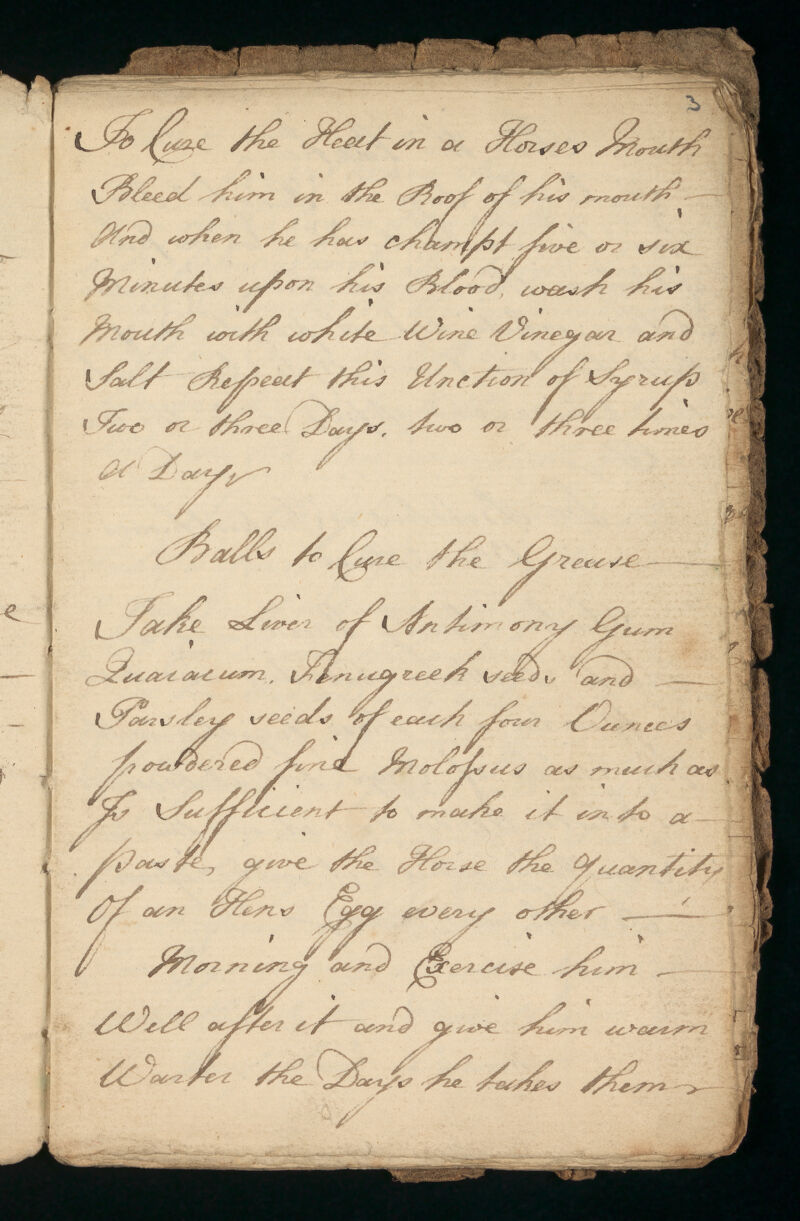 3
To Cure the Heat in a Horses Mouth
Bleed him in the Roof of his mouth —
And when he has champt five or six
Minutes upon his Blood, wash his
Mouth with white Wine Vinegar and
Salt Repeat this Unction of Syrup
Two or three Days. two or three times
A Day
Balls to Cure the Grease —
Take Liver of Antimony Gum
Quaiacum, Fenugreek seeds and —
Parsley seeds of each four Ounces
powdered fine Molossus as much as
Is Sufficient to make it in to a —
paste, give the Horse the quantity
Of an Hens Egg every other —
Morning and Exercise him —
Well after it and give him warm
Warter the Days he takes them